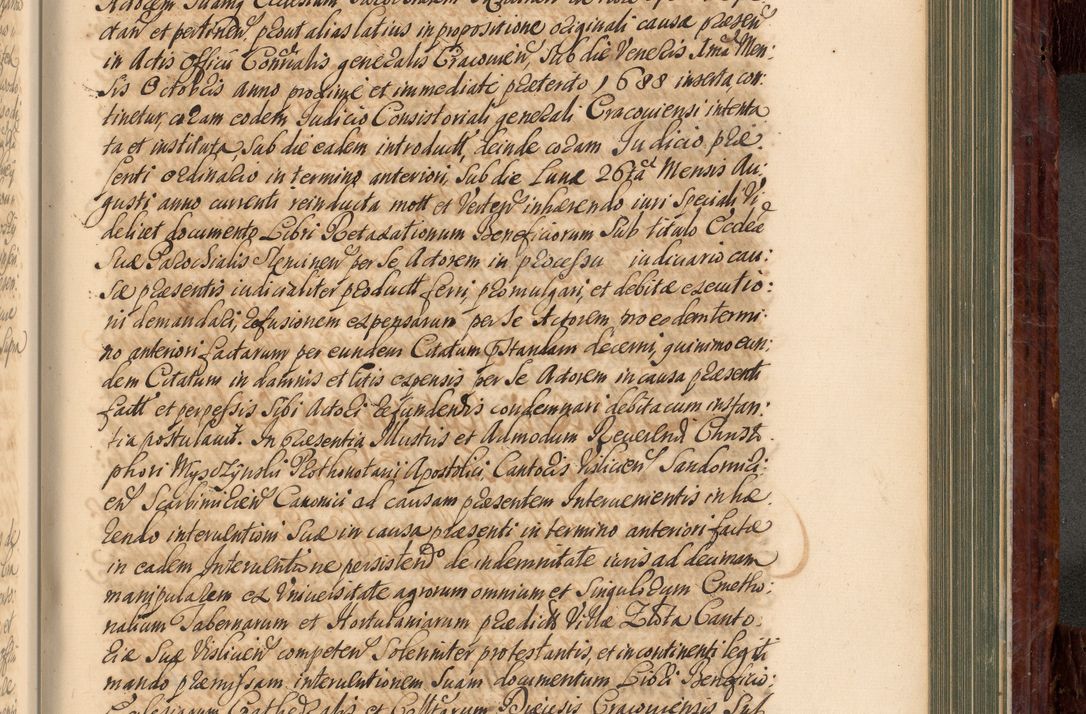 Actorem Suamq Ecclesiam Parochialem
ctan et pertinen, prout alias latius in propositione originali causæ præsen
in Actis Officii Conrialis generalis Cracovien, Sub die Veneris Ima Men:
sis Octobris anno proxime et immediate præterito 1688 inserta con:
tinetur, coram eodem Iudicio Consistoriali generali Cracoviensi intenta
ta et instituta, Sub die eadem introduct, deinde coram Iudicio præ:
senti ordinario in termino anteriori, Sub die Lunæ 26ta Mensis Au:
gusti anno currenti reinducta mott et Verten inhærendo iuri Speciali Vi
delicet documento Libri Retaxationum Beneficiorum Sub titulo Ecclæ
Suæ Parochialis Slupinen per Se Actorem in processu iudiciario cau:
sæ præsentis iudicialiter product ferri, promulgari, et debitæ executio:
ni demandari, refusionem expensarum per Se Actorem pro eodem termi:
no anteriori factarum per eundem Citatum præstandam decerni, quinimo eun:
dem Citatum in damnis et litis expensis per Se Actorem in causa præsenti
fact et perpessis Sibi Actori refundendis condemnari debita cum instan:
tia postulavit. In præsentia Illustris et Admodum Reverendi Christo
phori Myszzynski Prothonotarii Apostolici, Cantoris Vislicien Sandomiri:
en Scarbimirien Canonici ad causam præsentem Intervenientis inhæ
rendo interventioni Suæ in causa præsenti in termino anteriori factæ
in eadem Interventione persistendo de indemnitate iuris ad decimam
manipularem ex Vniversitate agrorum omnium et Singulorum Cmetho:
nalium Tabernarum et Hortulaniarum prædictæ Villæ Zlota Canto
riæ Suæ Vislicien competen Solenniter protestantis, et incontinenti legiti
mando præmissam interventionem Suam documentum Libri Beneficio:
Ecclesiarum Cathedralis et Diœcesis Cracoviensis Sub